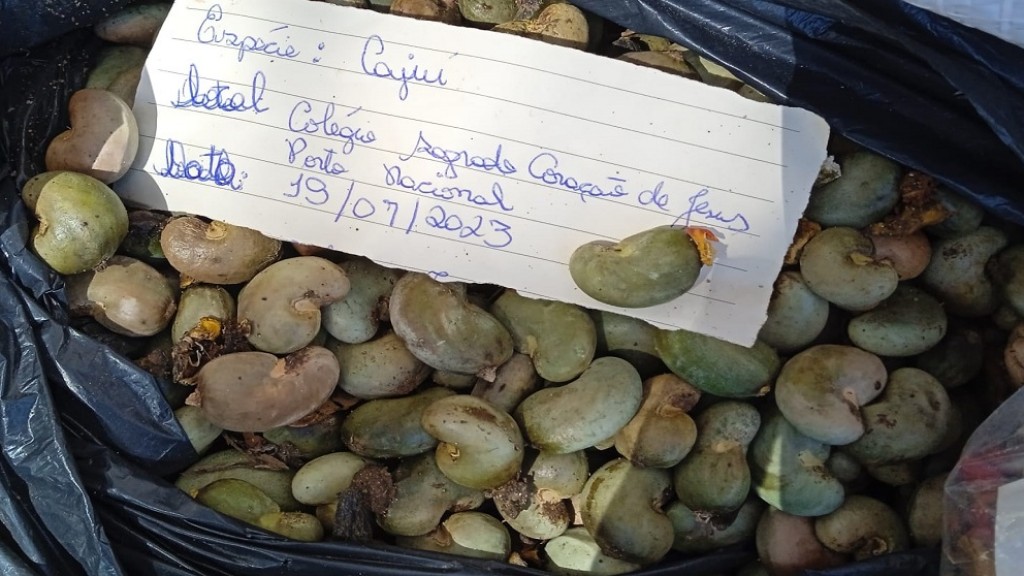 Espécie: Cajuí
Local Colégio Sagrado Coração de Jesus
Porto Nacional
Data: 19/07/2023